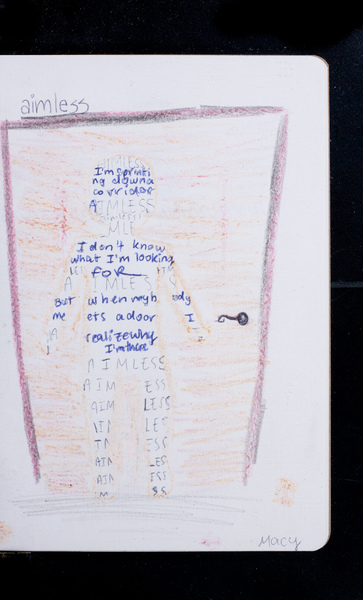 aimless
AIMLESS
I'm sprinti
ng down a
corridor
AIMLESS
MLE
I don't know
what I'm looking
FOR
AIMLES
But when my body
meets a door I
realize why
I'm there
AIMLESS
AIM ESS
AIM LESS
AIM LES
IM ESS
AIM LES
AIM ESS
M SS
Macy